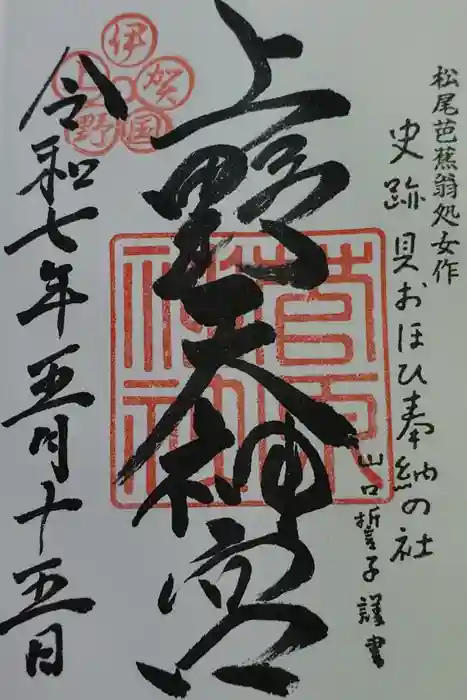 松尾芭蕉翁処女作
史跡 貝おほひ奉納の社
山口誓子 謹書
上野天神宮
菅原神社
伊賀国上野
令和七年五月十五日